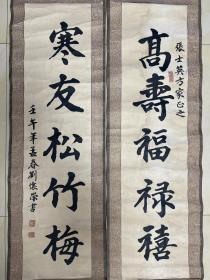 張士英方家正之
髙壽福禄禧
寒友松竹梅
壬午年孟春劉懷榮書